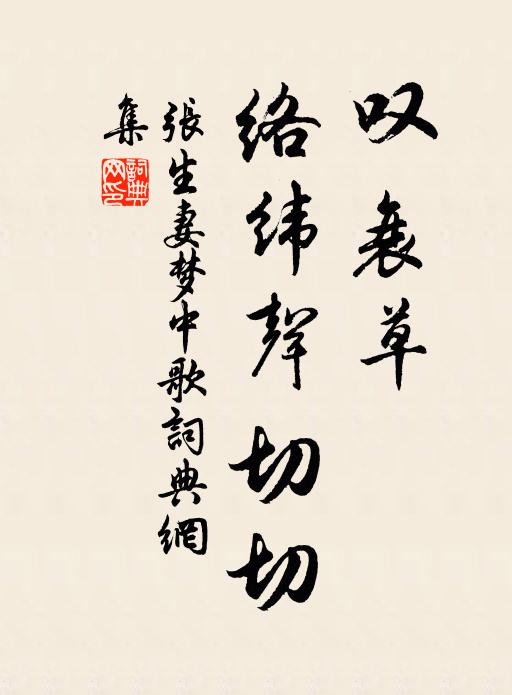 叹衰草
络纬声切切
张生妻梦中歌詞典網
集
詞典網印